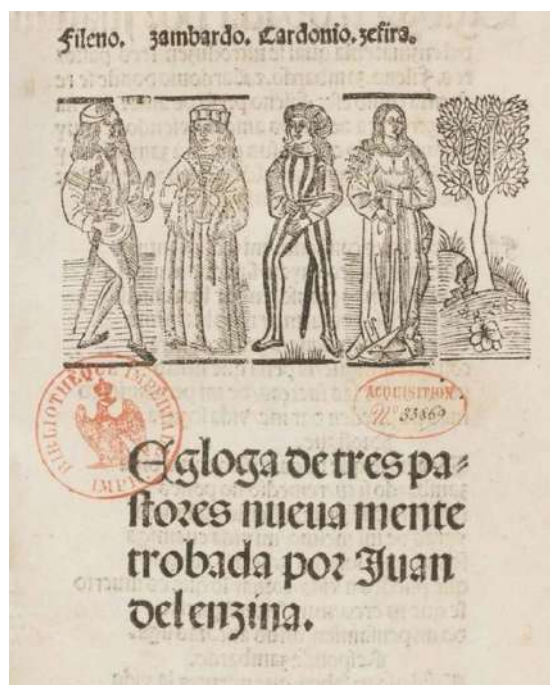 Fileno. zambardo. Cardonio. zefira.
BIBLIOTHÈQUE IMPÉRIALE
IMPR
ACQUISITION
Nº 33860
Egloga de tres pa⸗
stores nueua mente
trobada por Juan
del enzina.